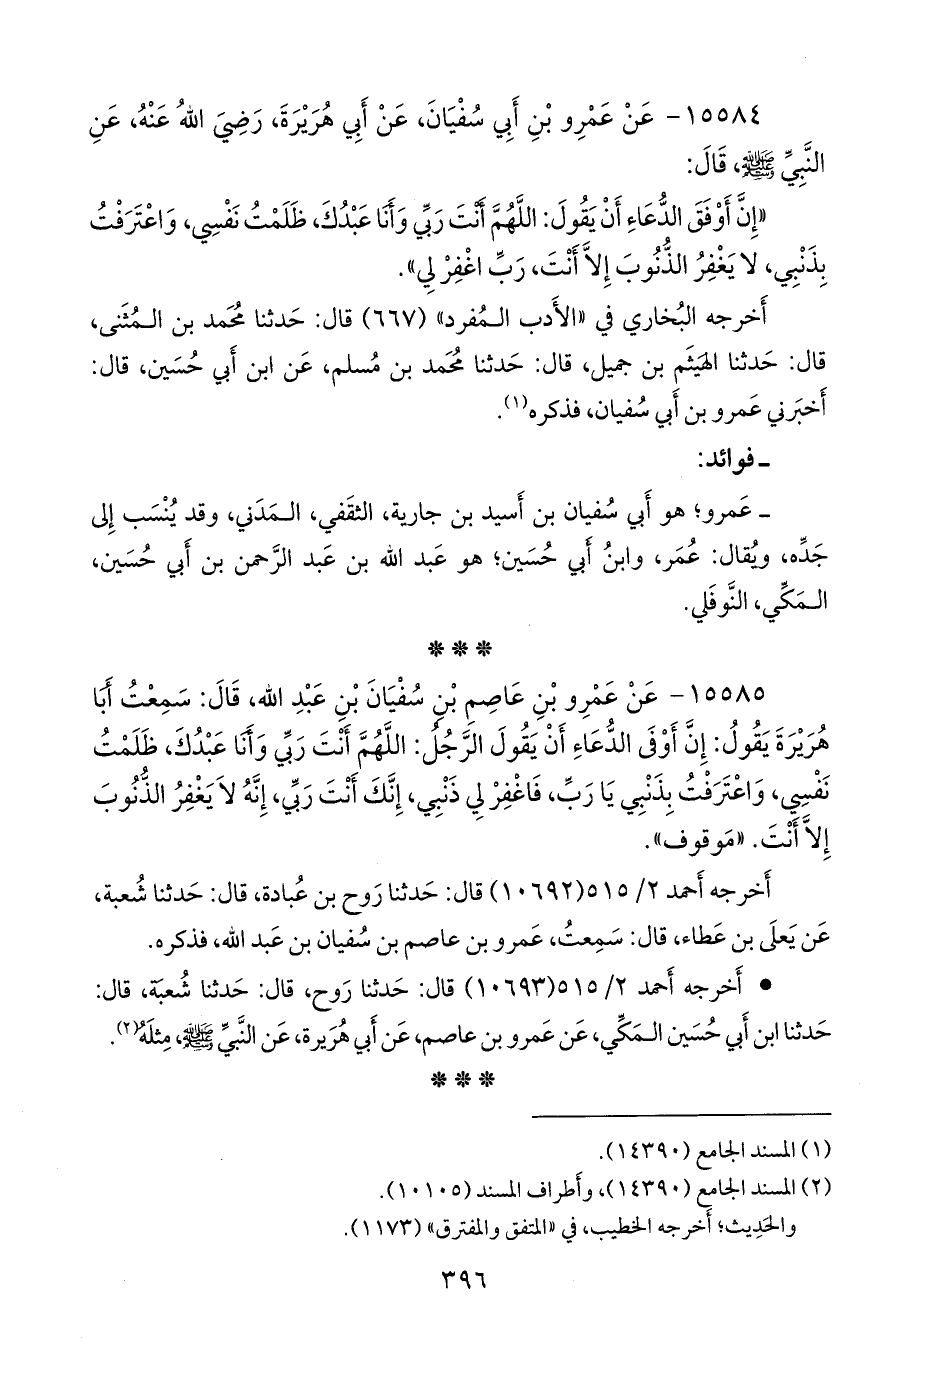 ١٥٥٨٤- عَنْ عَمْرِو بْنِ أَبِي سُفْيَانَ، عَنْ أَبِي هُرَيْرَةَ، رَضِيَ اللهُ عَنْهُ، عَنِ
النَّبِيِّ ﷺ، قَالَ:
«إِنَّ أَوْفَقَ الدُّعَاءِ أَنْ يَقُولَ: اللَّهُمَّ أَنْتَ رَبِّي وَأَنَا عَبْدُكَ، ظَلَمْتُ نَفْسِي، وَاعْتَرَفْتُ
بِذَنْبِي، لاَ يَغْفِرُ الذُّنُوبَ إِلاَّ أَنْتَ، رَبِّ اغْفِرْ لِي».
أَخرجه البُخاري في «الأَدب الـمُفرد» (٦٦٧) قال: حَدثنا مُحمد بن الـمُثنى،
قال: حَدثنا الهَيثَم بن جميل، قال: حَدثنا مُحمد بن مُسلم، عَن ابن أَبي حُسَين، قال:
أَخبَرني عَمرو بن أَبي سُفيان، فذكره(١).
ـ فوائد:
ـ عَمرو؛ هو أَبي سُفيان بن أَسيد بن جارية، الثقَفي، الـمَدَني، وقد يُنْسَب إِلى
جَدِّه، ويُقال: عُمَر، وابنُ أَبي حُسَين؛ هو عَبد الله بن عَبد الرَّحمن بن أَبي حُسَين،
الـمَكِّي، النَّوفَلي.
* * *
١٥٥٨٥- عَنْ عَمْرِو بْنِ عَاصِمِ بْنِ سُفْيَانَ بْنِ عَبْدِ الله، قَالَ: سَمِعْتُ أَبَا
هُرَيْرَةَ يَقُولُ: إِنَّ أَوْفَى الدُّعَاءِ أَنْ يَقُولَ الرَّجُلُ: اللَّهُمَّ أَنْتَ رَبِّي وَأَنَا عَبْدُكَ، ظَلَمْتُ
نَفْسِي، وَاعْتَرَفْتُ بِذَنْبِي يَا رَبِّ، فَاغْفِرْ لِي ذَنْبِي، إِنَّكَ أَنْتَ رَبِّي، إِنَّهُ لاَ يَغْفِرُ الذُّنُوبَ
إِلاَّ أَنْتَ. «مَوقوف».
أَخرجه أَحمد ٢/ ٥١٥(١٠٦٩٢) قال: حَدثنا رَوح بن عُبادة، قال: حَدثنا شُعبة،
عَن يَعلَى بن عَطاء، قال: سَمِعتُ، عَمرو بن عاصم بن سُفيان بن عَبد الله، فذكره.
• أَخرجه أَحمد ٢/ ٥١٥(١٠٦٩٣) قال: حَدثنا رَوح، قال: حَدثنا شُعبَة، قال:
حَدثنا ابن أَبي حُسَين الـمَكِّي، عَن عَمرو بن عاصم، عَن أَبي هُرَيرة، عَن النَّبيِّ ﷺ، مِثلَهُ(٢).
* * *
(١) المسند الجامع (١٤٣٩٠).
(٢) المسند الجامع (١٤٣٩٠)، وأَطراف المسند (١٠١٠٥).
والحَدِيث؛ أَخرجه الخطيب، في «المتفق والمفترق» (١١٧٣).
٣٩٦